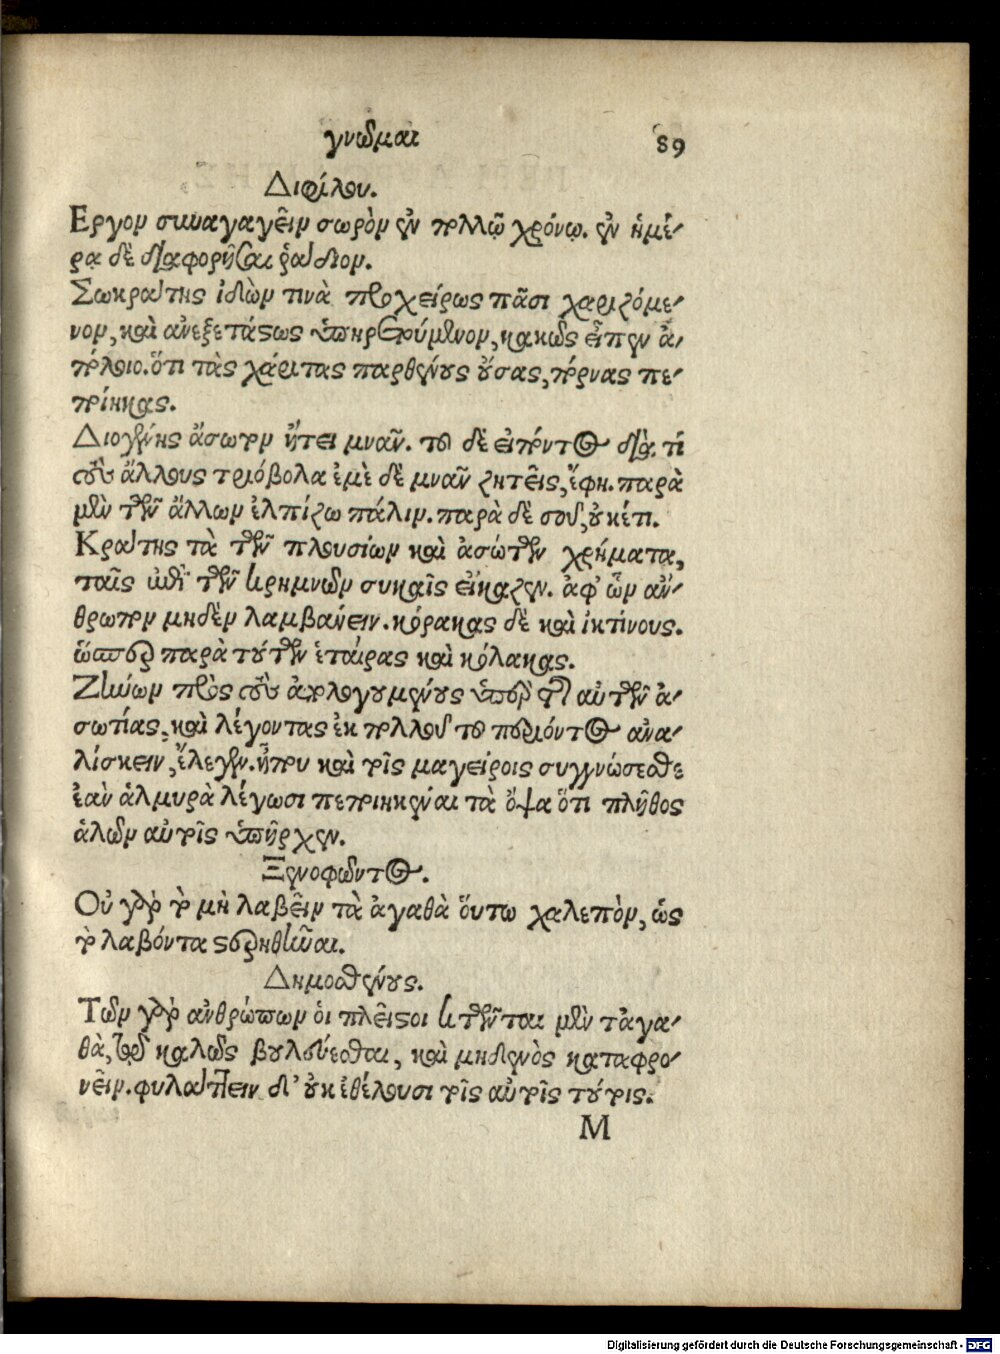 γνῶμαι 89
Διφίλου.
Εργον συναγαγεῖν σωρὸν ἐν πολλῷ χρόνῳ. ἐν ἡμέ-
ρᾳ δὲ διαφορῆσαι ῥᾴδιον.
Σωκράτης ἰδὼν τινὰ προχείρως πᾶσι χαριζόμε-
νον, καὶ ἀνεξετάστως ὑπηρετούμενον, κακῶς εἶπεν ἀ-
πόλοιο. ὅτι τὰς χάριτας παρθένους οὔσας, πόρνας πε-
ποίηκας.
Διογένης ἄσωτον ᾔτει μνᾶν. τοῦ δὲ εἰπόντος διὰ τί
τοὺς ἄλλους τριόβολα ἐμὲ δὲ μνᾶν ζητεῖς, ἔφη. παρὰ
μὲν τῶν ἄλλων ἐλπίζω πάλιν. παρὰ δὲ σοῦ, οὐκέτι.
Κράτης τὰ τῶν πλουσίων καὶ ἀσώτων χρήματα,
ταῖς ἐπὶ τῶν κρημνῶν συκαῖς εἴκαζεν. ἀφ' ὧν ἄν-
θρωπον μηδὲν λαμβάνειν. κόρακας δὲ καὶ ἰκτίνους.
ὥσπερ παρὰ τούτων ἑταίρας καὶ κόλακας.
Ζήνων πρὸς τοὺς ἀπολογουμένους ὑπὲρ τῆς αὐτῶν ἀ-
σωτίας, καὶ λέγοντας ἐκ πολλοῦ τοῦ περιόντος ἀνα-
λίσκειν, ἔλεγεν. ἤπου καὶ τοῖς μαγείροις συγγνώσεσθε
ἐὰν ἁλμυρὰ λέγωσι πεποιηκέναι τὰ ὄψα ὅτι πλῆθος
ἁλῶν αὐτοῖς ὑπῆρχεν.
Ξενοφῶντος.
Οὐ γὰρ τὸ μὴ λαβεῖν τὰ ἀγαθὰ οὕτω χαλεπὸν, ὡς
τὸ λαβόντα στερηθῆναι.
Δημοσθένους.
Τῶν γὰρ ἀνθρώπων ὁι πλεῖστοι κτῶνται μὲν τἀγα-
θὰ, τῷ καλῶς βουλεύεσθαι, καὶ μηδενὸς καταφρο-
νεῖν. φυλάττειν δ' οὐκ ἐθέλουσι τοῖς αὐτοῖς τούτοις.
M
Digitalisierung gefördert durch die Deutsche Forschungsgemeinschaft - DFG